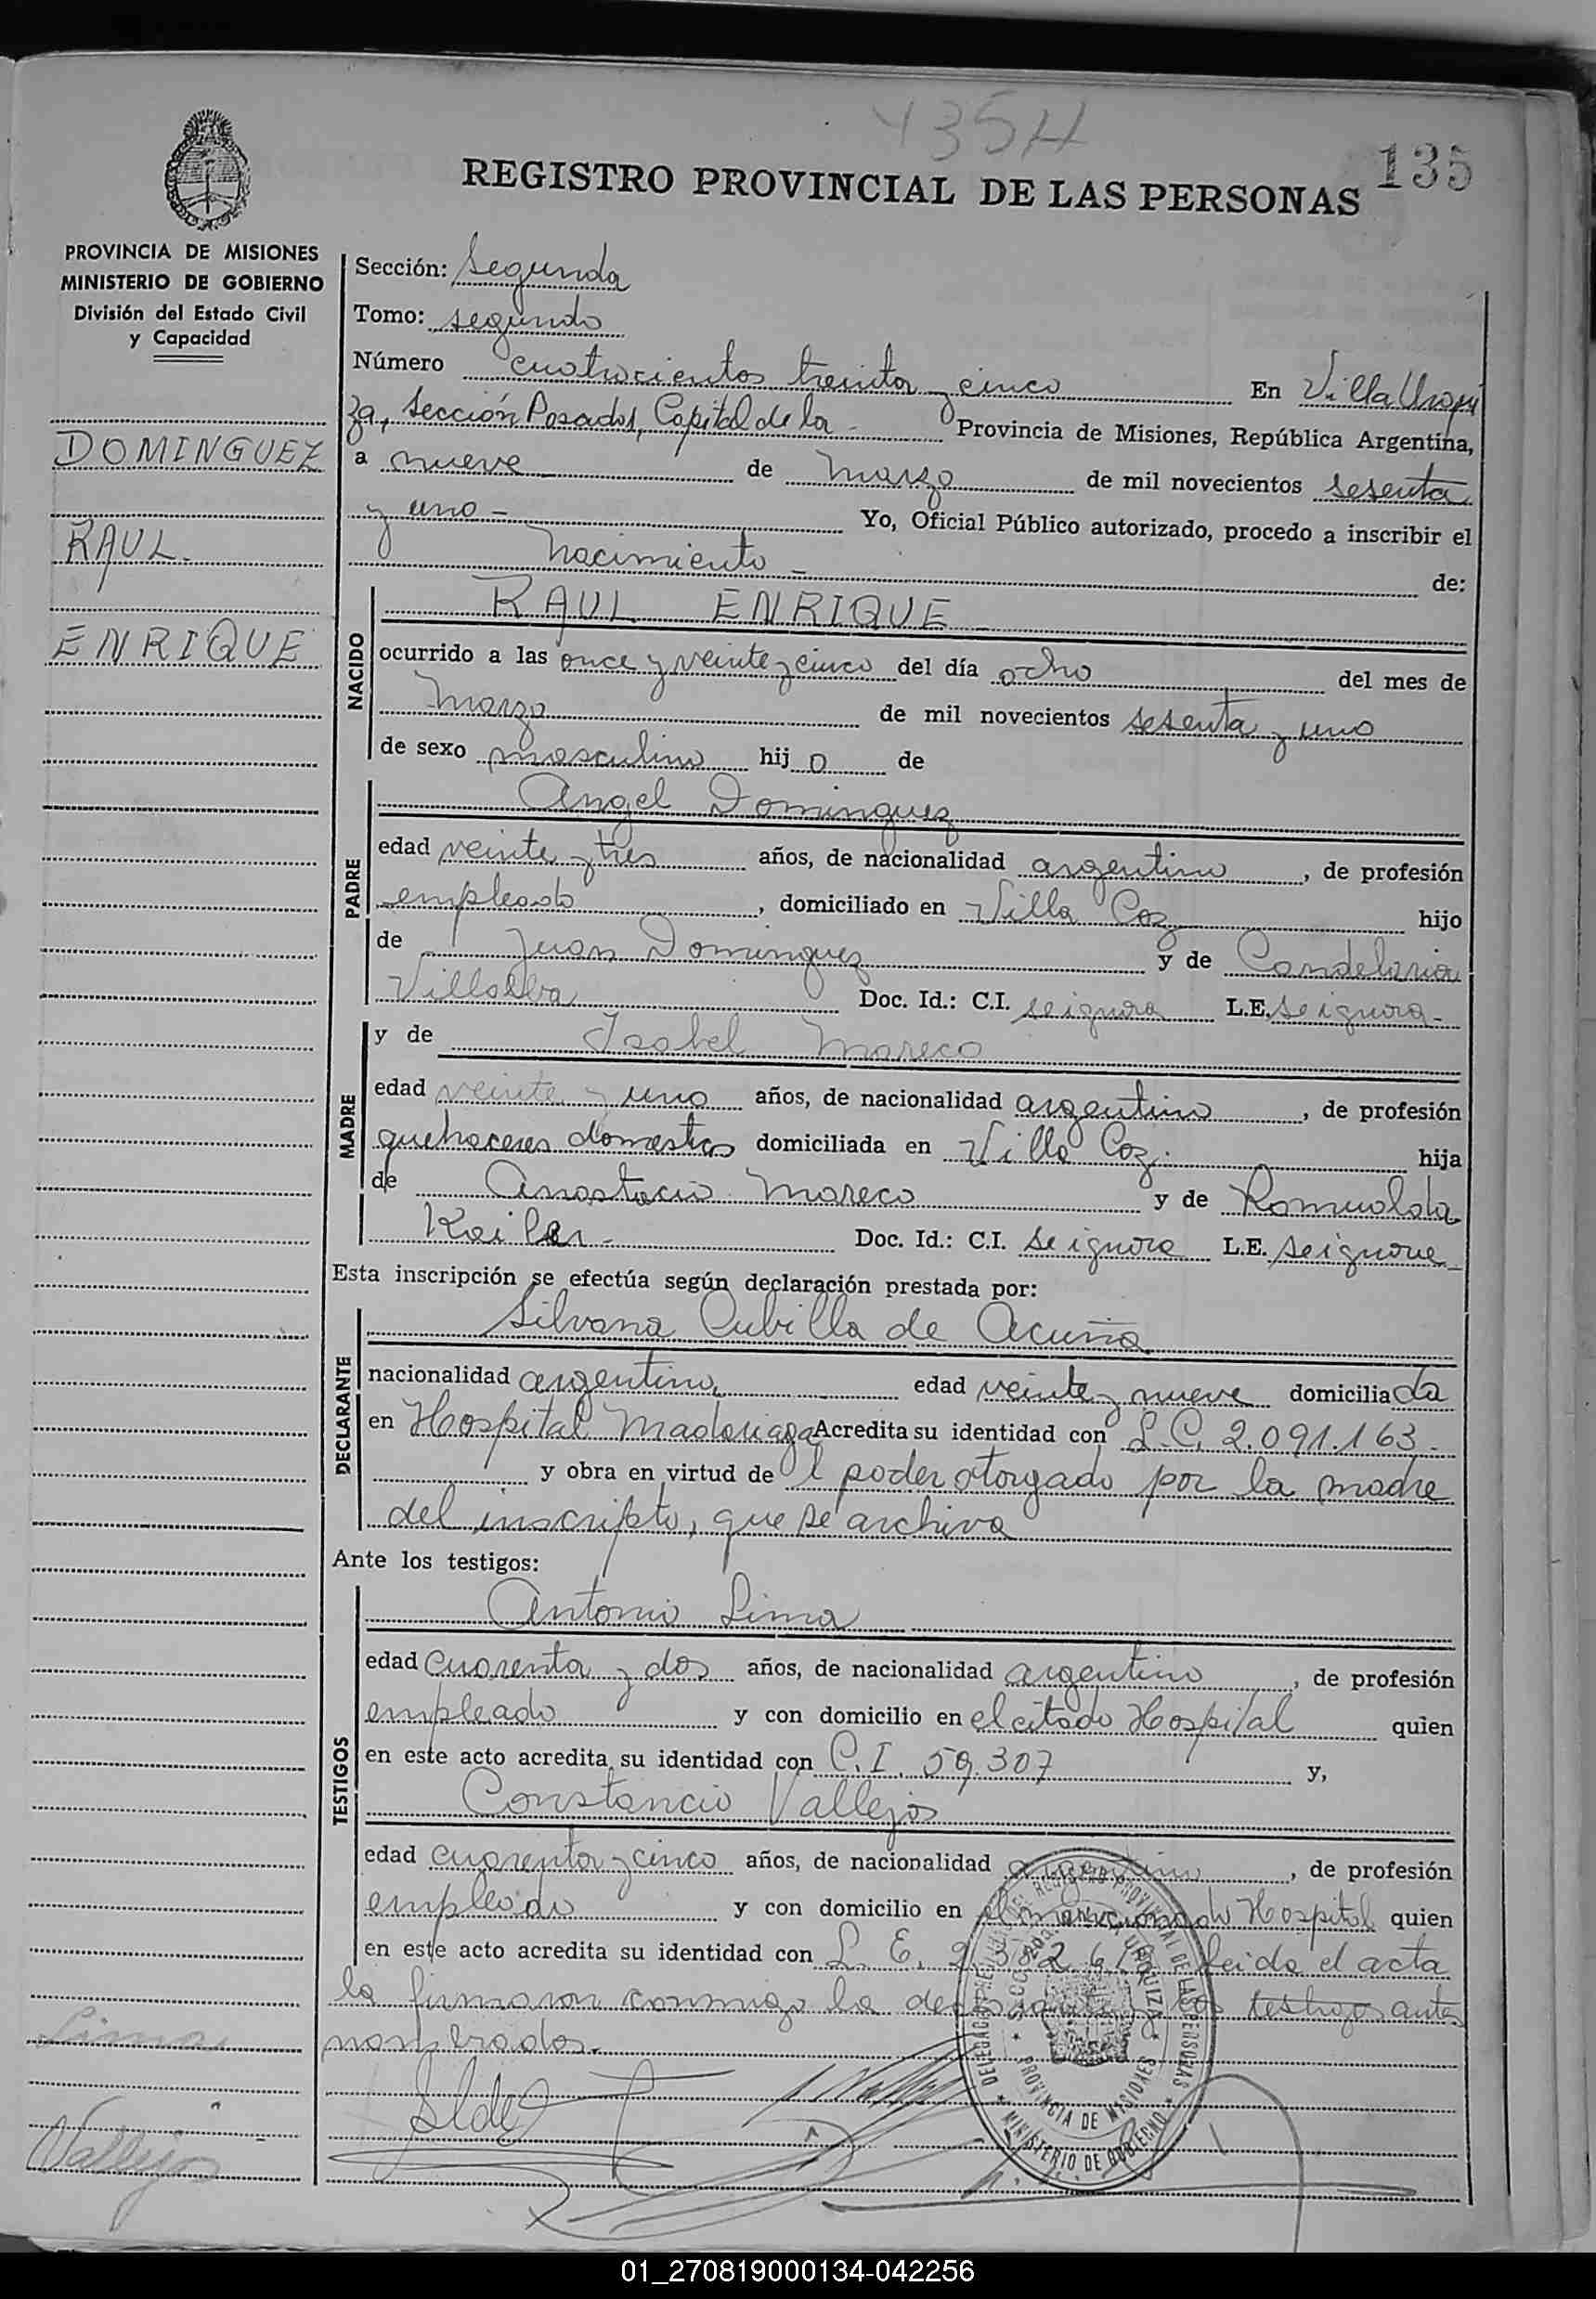 435H
135
REGISTRO PROVINCIAL DE LAS PERSONAS
PROVINCIA DE MISIONES
MINISTERIO DE GOBIERNO
División del Estado Civil
y Capacidad
DOMINGUEZ
RAUL
ENRIQUE
Sección: Segunda
Tomo: segundo
Número cuatrocientos treinta y cinco En Villa Urqui
za, Sección Posadas, Capital de la - Provincia de Misiones, República Argentina,
a nueve de marzo de mil novecientos sesenta
y uno - Yo, Oficial Público autorizado, procedo a inscribir el
nacimiento - de:
NACIDO
RAUL ENRIQUE -
ocurrido a las once y veinte y cinco del día ocho del mes de
marzo de mil novecientos sesenta y uno
de sexo masculino hijo de
PADRE
Angel Dominguez
edad veinte y tres años, de nacionalidad argentino, de profesión
empleado, domiciliado en Villa Coz hijo
de Juan Dominguez y de Candelaria
Villalba Doc. Id.: C.I. se ignora L.E. se ignora -
MADRE
y de Isabel Mareco
edad veinte y uno años, de nacionalidad argentina, de profesión
quehaceres domesticos domiciliada en Villa Coz. hija
de Anastacio Mareco y de Romualda
Doc. Id.: C.I. se ignora L.E. se ignora
Esta inscripción se efectúa según declaración prestada por:
DECLARANTE
Silvana Cubilla de Acuña
nacionalidad argentina edad veinte y nueve domiciliada
en Hospital Madariaga Acredita su identidad con L.C. 2.091.163.
y obra en virtud del poder otorgado por la madre
del inscripto, que se archiva
Ante los testigos:
TESTIGOS
Antonio Lima
edad cuarenta y dos años, de nacionalidad argentino, de profesión
empleado y con domicilio en el citado Hospital quien
en este acto acredita su identidad con C.I. 59.307 y,
Constancio Vallejos
edad cuarenta y cinco años, de nacionalidad argentino, de profesión
empleado y con domicilio en el mencionado Hospital quien
en este acto acredita su identidad con L.E. Leida el acta
la firmaron conmigo la declarante y los testigos antes
nombrados.-
Lima
Vallejos
PROVINCIA DE MISIONES
MINISTERIO DE GOBIERNO
01_270819000134-042256